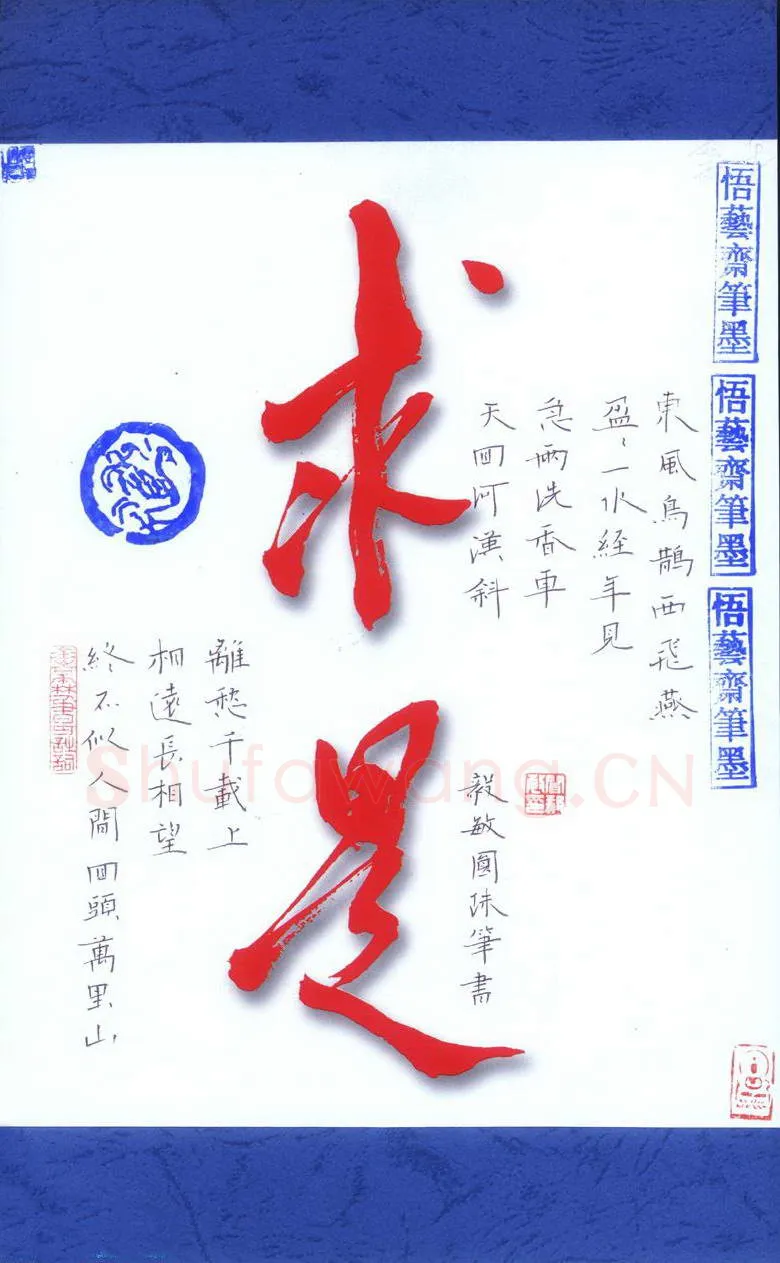 悟藝齋筆墨
悟藝齋筆墨
悟藝齋筆墨
東風鳥鵲西飛燕
盈、一水經年見
急雨洗香車
天囬河漢斜
求是
離愁千載上
相遠長相望
終不似人間囬頭萬里山
毅敏圓珠筆書
Shufawang.CN